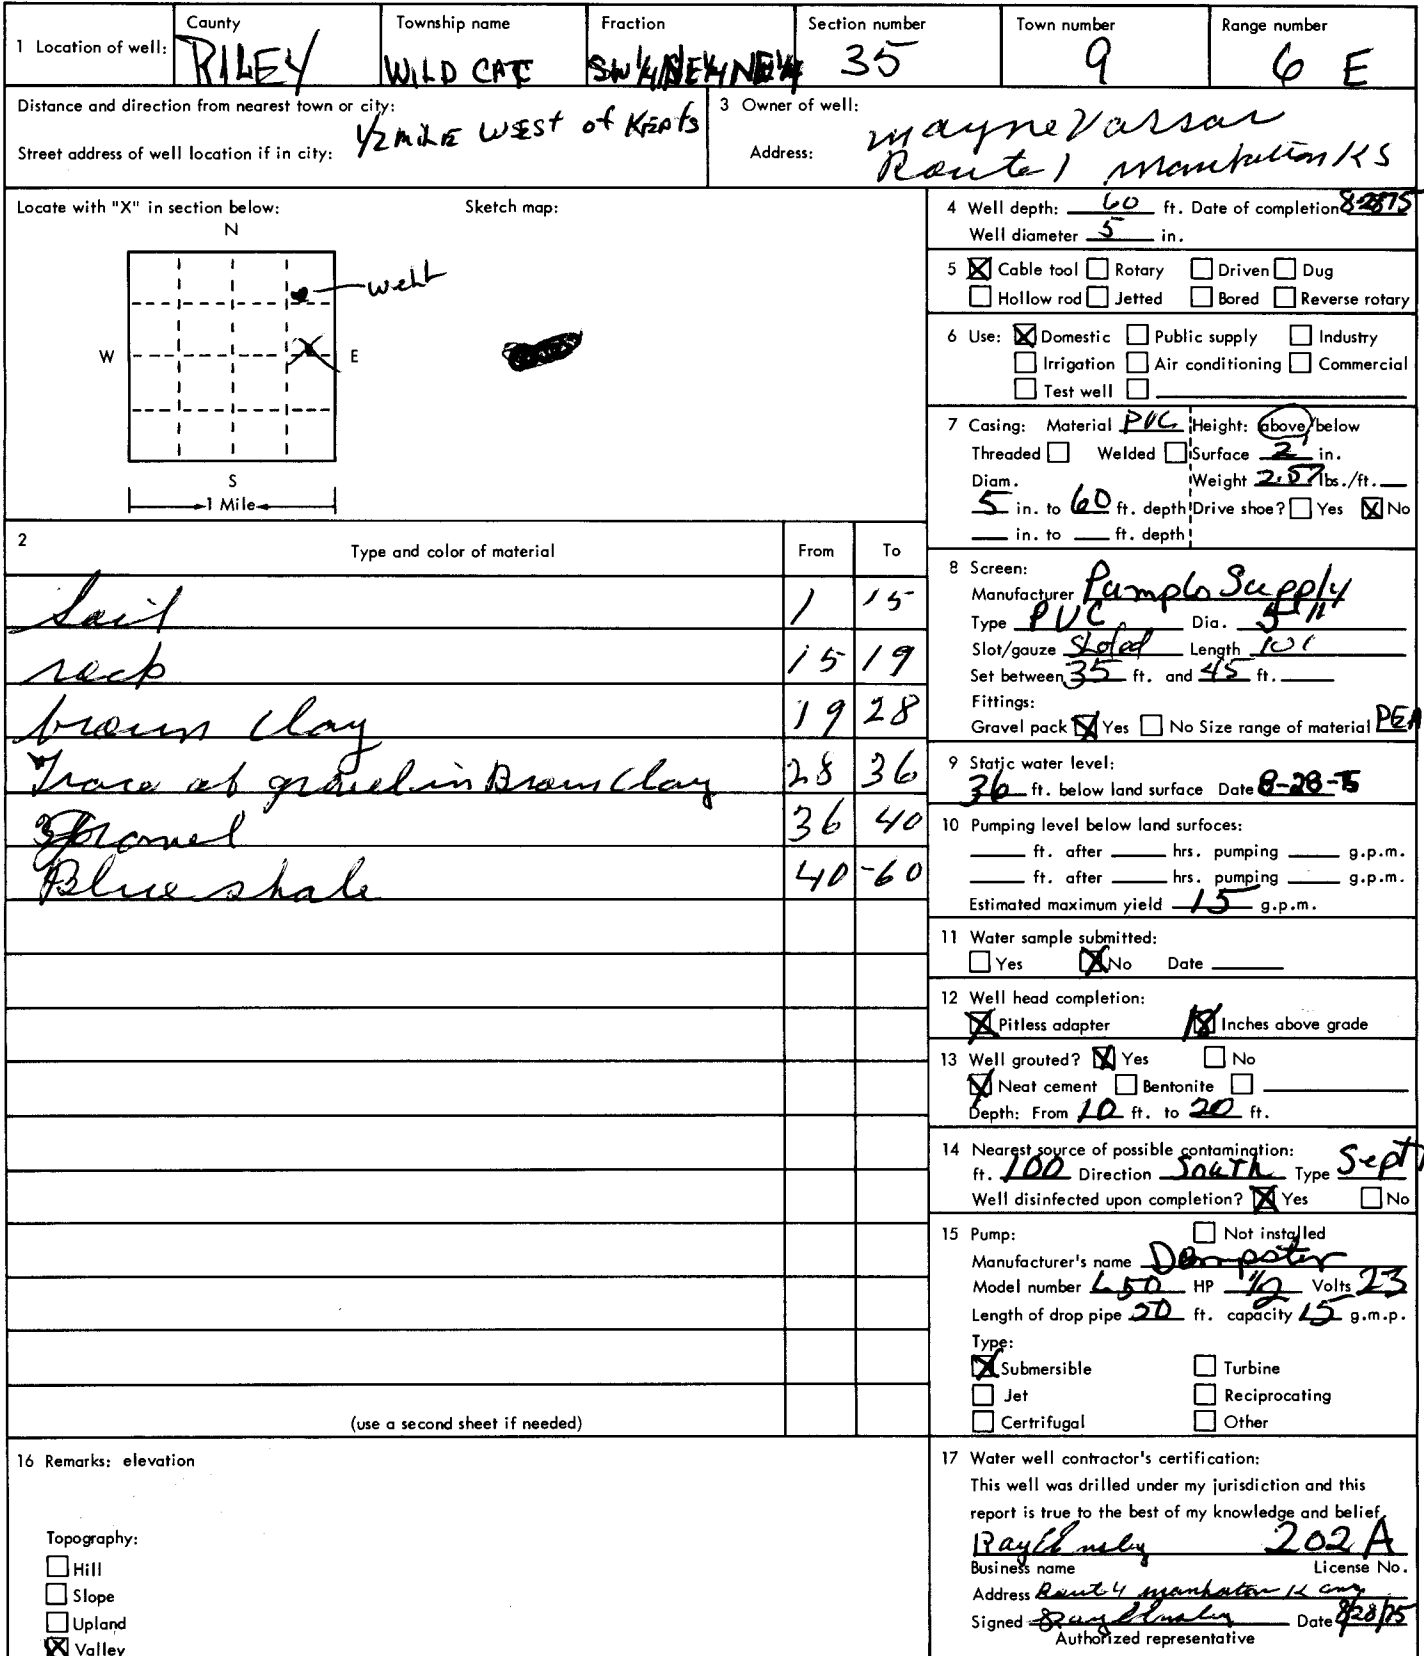 1 Location of well:
County
RILEY
Township name
WILD CAT
Fraction
SW 1/4 SE 1/4 NE 1/4
Section number
35
Town number
9
Range number
6 E
Distance and direction from nearest town or city:
1/2 MILE WEST of KEATS
Street address of well location if in city:
3 Owner of well:
Wayne Vassar
Address:
Route 1 Manhattan KS
Locate with "X" in section below:
Sketch map:
N
Well
W
E
S
1 Mile
4 Well depth: 60 ft. Date of completion 8-28-75
Well diameter 5 in.
5 Cable tool Rotary Driven Dug
Hollow rod Jetted Bored Reverse rotary
6 Use: Domestic Public supply Industry
Irrigation Air conditioning Commercial
Test well
7 Casing: Material PVC Height: above/below
Threaded Welded Surface 2 in.
Diam. Weight lbs./ft.
5 in. to 60 ft. depth Drive shoe? Yes No
in. to ft. depth
2
Type and color of material From To
Soil 1 15
rock 15 19
brown clay 19 28
Trace of gravel in Brown Clay 28 36
Gravel 36 40
Blue shale 40-60
(use a second sheet if needed)
8 Screen:
Manufacturer Supply
Type PVC Dia. 5"
Slot/gauze Sloted Length 10'
Set between 35 ft. and 45 ft.
Fittings:
Gravel pack Yes No Size range of material PEA
9 Static water level:
36 ft. below land surface Date 8-28-75
10 Pumping level below land surfoces:
ft. after hrs. pumping g.p.m.
ft. after hrs. pumping g.p.m.
Estimated maximum yield 15 g.p.m.
11 Water sample submitted:
Yes No Date
12 Well head completion:
Pitless adapter 18 Inches above grade
13 Well grouted? Yes No
Neat cement Bentonite
Depth: From 10 ft. to 20 ft.
14 Nearest source of possible contamination:
ft. 100 Direction South Type Septi
Well disinfected upon completion? Yes No
15 Pump: Not installed
Manufacturer's name Dempster
Model number L50 HP 1/2 Volts 23
Length of drop pipe 50 ft. capacity 15 g.m.p.
Type:
Submersible Turbine
Jet Reciprocating
Certrifugal Other
16 Remarks: elevation
Topography:
Hill
Slope
Upland
Valley
17 Water well contractor's certification:
This well was drilled under my jurisdiction and this
report is true to the best of my knowledge and belief.
Ray 202 A
Business name License No.
Address Rout 4 manhatan
Signed Ray Date 8/28/75
Authorized representative